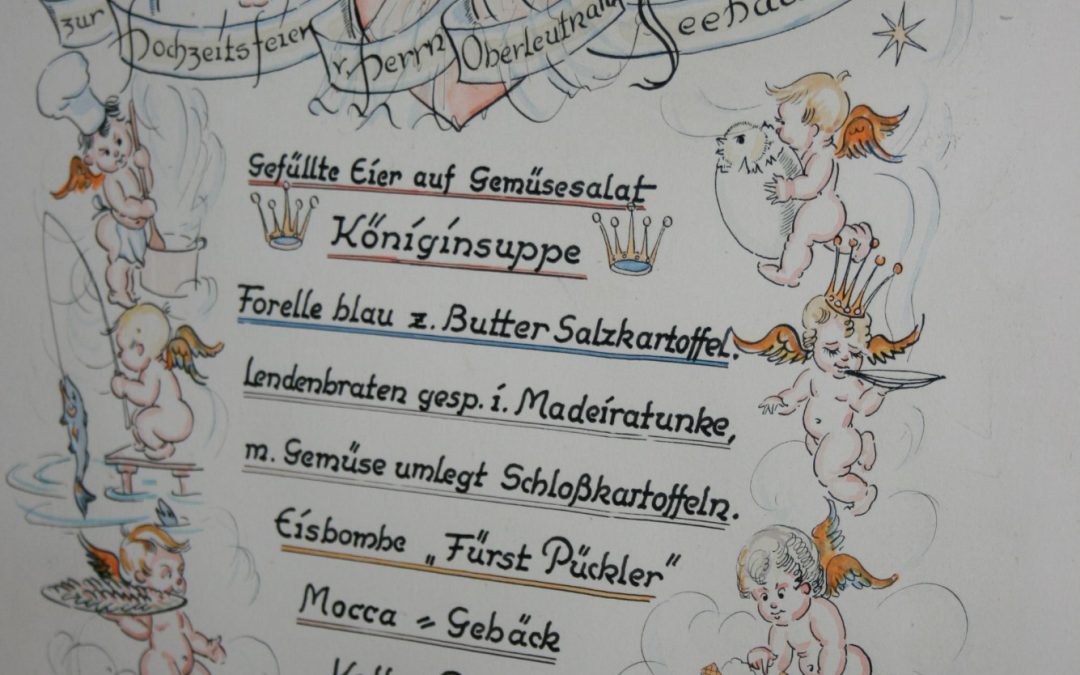 zur Hochzeitsfeier v. Herrn Oberleutnant
Gefüllte Eier auf Gemüsesalat
Königinsuppe
Forelle blau z. Butter Salzkartoffel.
Lendenbraten gesp. i. Madeiratunke,
m. Gemüse umlegt Schloßkartoffeln.
Eisbombe „Fürst Pückler"
Mocca = Gebäck